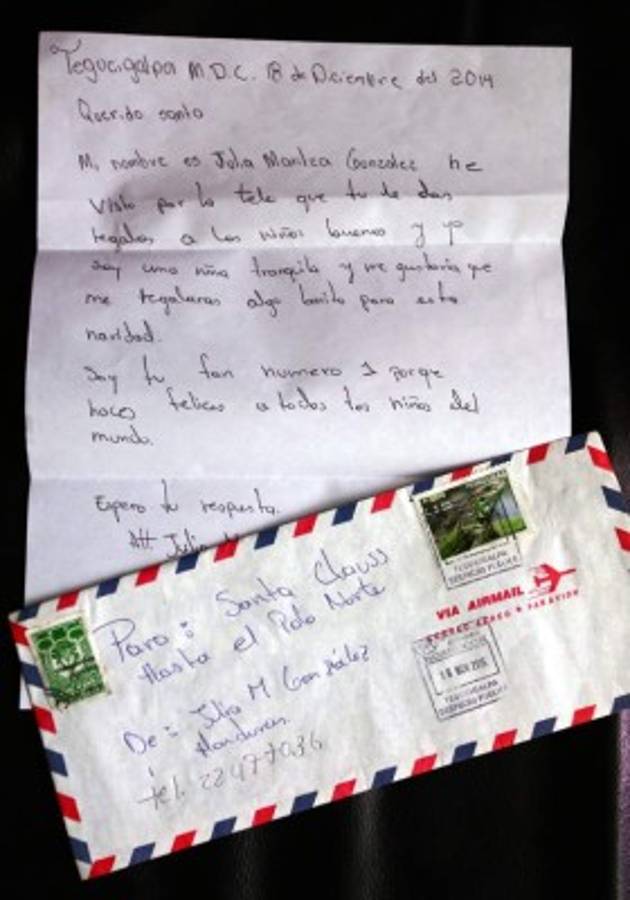 Tegucigalpa M.D.C. 18 de Diciembre del 2014
Querido santa
Mi nombre es Julia Maritza Gonzalez he
visto por la tele que tu le das
regalos a los niños buenos y yo
soy una niña tranquila y me gustaria que
me regalaras algo bonito para esta
navidad.
Soy tu fan numero 1 porque
haces felices a todos los niños del
mundo.
Espero tu respuesta.
Att. Julia M
Para: Santa Clauss
Hasta el Polo Norte
De: Julia M González
Honduras.
tel. 22477036
TEGUCIGALPA
DESPACHO PUBLICO
VIA AIRMAIL
CORREO AEREO PAR AVION
18 NOV 2015
TEGUCIGALPA
DESPACHO PUBLICO